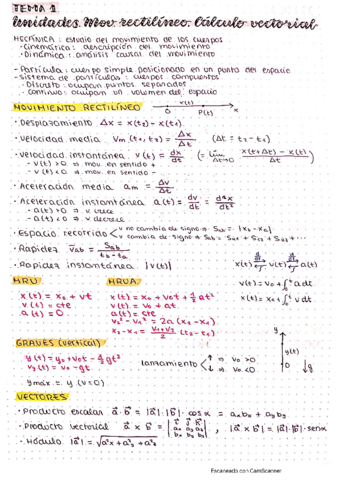 TEMA 1
Unidades. Mov. rectilíneo. Cálculo vectorial
MECÁNICA: estudio del movimiento de los cuerpos
· Cinemática: descripción del movimiento
· Dinámica: análisis causal del movimiento
· Partícula: cuerpo simple posicionado en un punto del espacio
· Sistema de partículas: cuerpos compuestos
· Discreto: ocupan puntos separados
· Continuo: ocupan un volumen del espacio
MOVIMIENTO RECTILÍNEO
v(t)
P(t)
x
· Desplazamiento Δx = x(t₂) - x(t₁)
· Velocidad media Vm(t₁,t₂) = Δx/Δt (Δt = t₂ - t₁)
· Velocidad instantánea: v(t) = dx/dt (= lim Δt→0 x(t+Δt) - x(t)/Δt)
- v(t) > 0 ⇒ mov. en sentido +
- v(t) < 0 ⇒ mov. en sentido -
· Aceleración media am = Δv/Δt
· Aceleración instantánea a(t) = dv/dt = d²x/dt²
- a(t) > 0 ⇒ v crece
- a(t) < 0 ⇒ v decrece
· Espacio recorrido < v no cambia de signo ⇒ Sab =
v cambia de signo ⇒ Sab =
· Rapidez Vab = Sab/tb - ta
· Rapidez instantánea |v(t)|
x(t) v(t) a(t)
MRU
MRUA
v(t) = v₀ + ∫ a dt
x(t) = x₀ + ∫ v dt
x(t) = x₀ + vt
x(t) = x₀ + v₀t + ½ at²
v(t) = cte
v(t) = v₀ + at
a(t) = 0
a(t) = cte
v₂² - v₁² = 2a (x₂ - x₁)
x₂ - x₁ = v₁ + v₂/2 (t₂ - t₁)
GRAVES (vertical)
y(t) = y₀ + v₀t - ½ gt²
vy(t) = v₀ - gt
ymáx = y (v=0)
Lanzamiento < ↑ ⇒ v₀ > 0
↓ ⇒ v₀ < 0
y
y(t)
0
↓g
VECTORES
· Producto escalar a · b = |a| · |b| · cos α = axbx + ayby
· Producto vectorial a × b = | i j k ax ay az bx by bz | , |a × b| = |a| · |b| · sen α
· Módulo |a| = √a²x + a²y + a²z
Escaneado con CamScanner